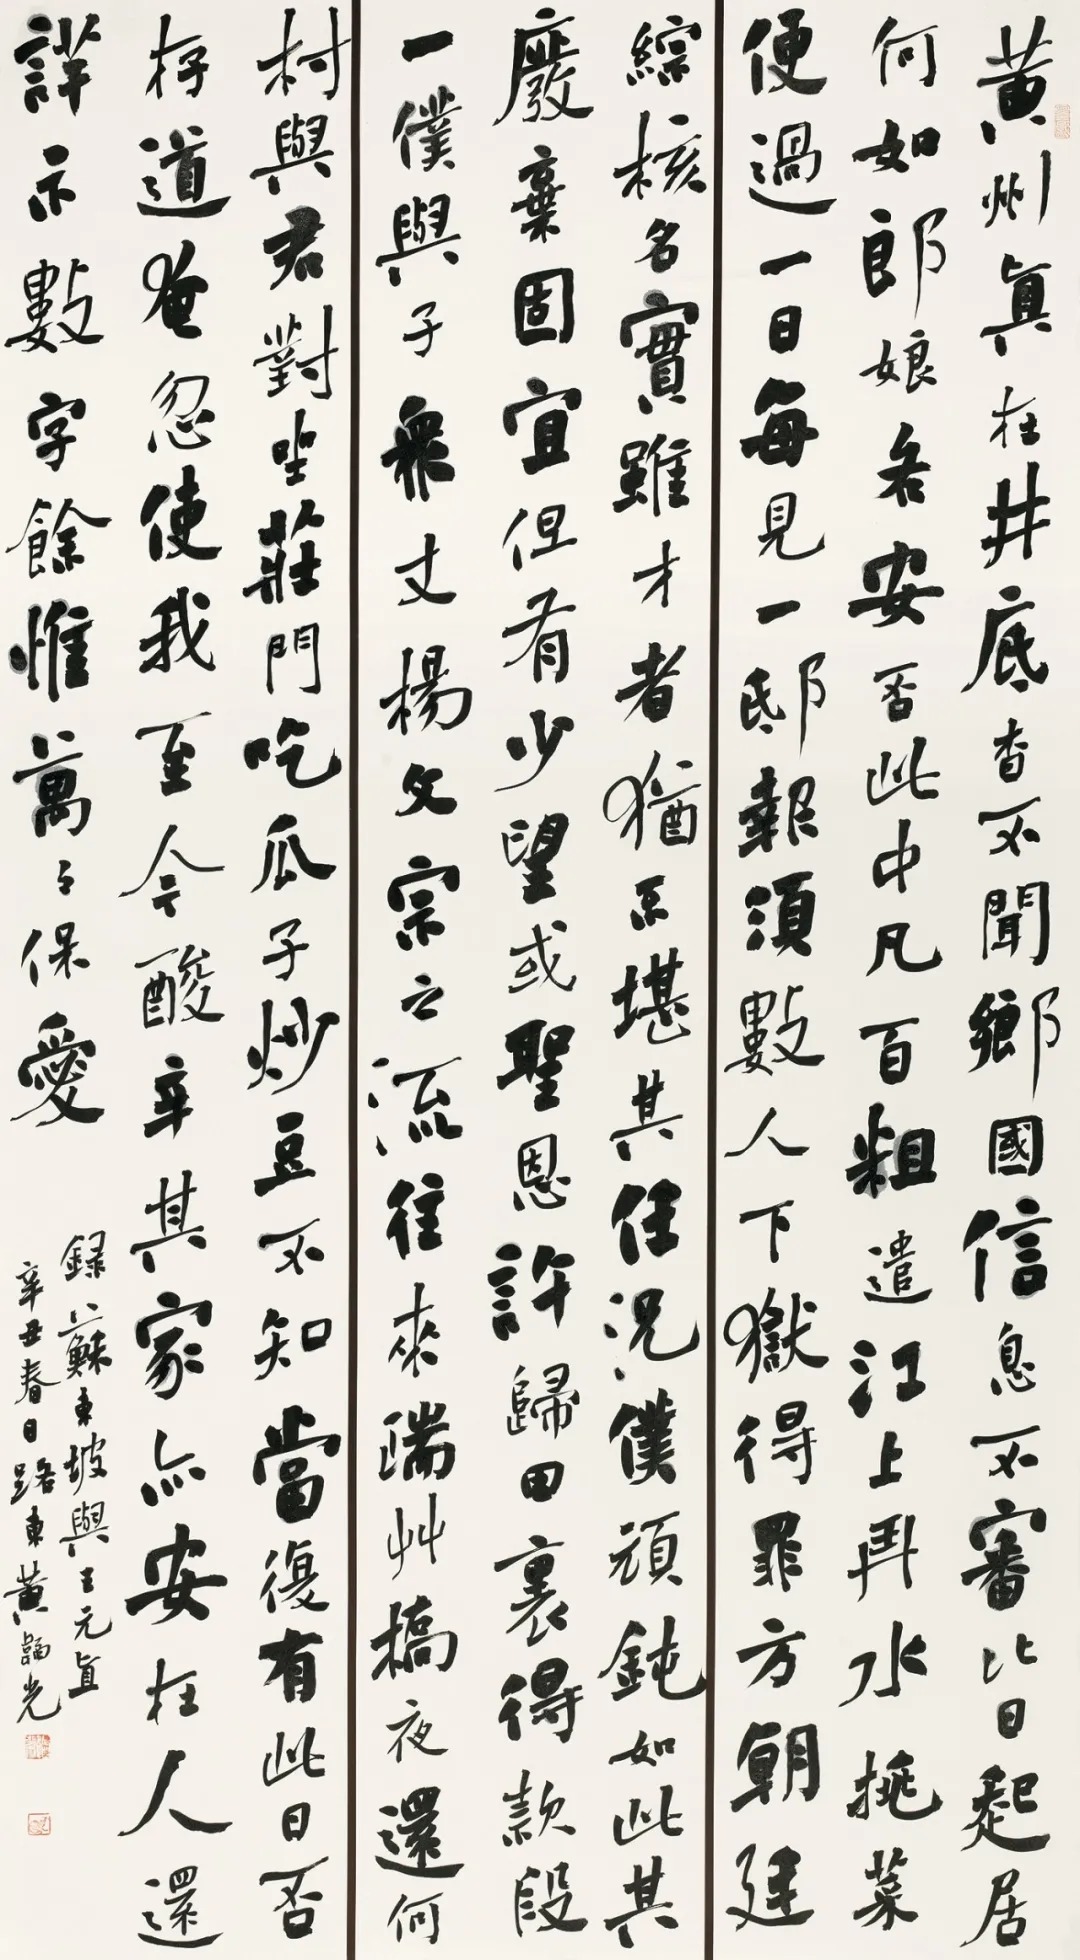 黄州真在井底杳不聞鄉國信息不審比日起居
何如郎娘各安否此中凡百粗遣江上鬥水挑菜
便過一日每見一邸報須數人下獄得罪方朝廷
綜核名實雖才者猶不堪其任況僕頑鈍如此其
廢棄固宜但有少望或聖恩許歸田裏得款段
一僕與子衆丈楊文宗之流往來瑞草橋夜還何
村與君對坐莊門吃瓜子炒豆不知當復有此日否
存道奄忽使我至今酸辛其家亦安在人還
詳示數字餘惟萬々保愛
録蘇東坡與王元直
辛丑春日路東黄光